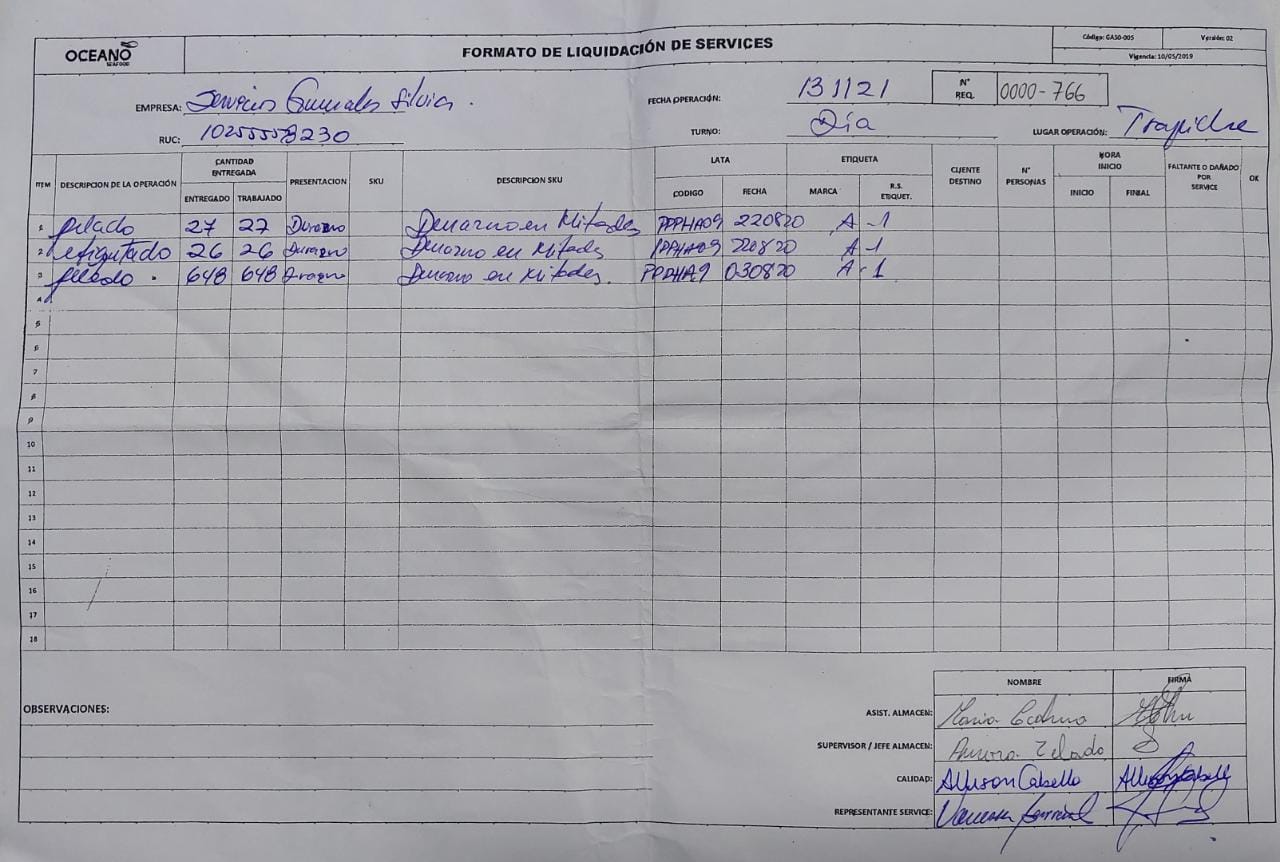 OCEANO
SEAFOOD
FORMATO DE LIQUIDACIÓN DE SERVICES
Código: GASO-005
Versión: 02
Vigencia: 10/05/2019
EMPRESA: Servicios Gonzales Silvia.
FECHA OPERACIÓN: 131121
N° REQ. 0000-766
RUC: 10255558230
TURNO: Día
LUGAR OPERACIÓN: Trapiche
ITEM DESCRIPCION DE LA OPERACIÓN CANTIDAD ENTREGADA PRESENTACION SKU DESCRIPCION SKU LATA ETIQUETA CLIENTE DESTINO N° PERSONAS HORA INICIO FALTANTE O DAÑADO POR SERVICE OK
ENTREGADO TRABAJADO CODIGO FECHA MARCA R.S. ETIQUET. INICIO FINIAL
1 pelado 27 27 Durazno Durazno en Mitades PPPHA09 220820 A-1
2 etiquetado 26 26 Durazno Durazno en Mitades PPPHA09 220820 A-1
3 pelado. 648 648 Durazno Durazno en Mitades. PPDHA9 030820 A-1
4
5
6
7
8
9
10
11
12
13
14
15
16
17
18
NOMBRE FIRMA
OBSERVACIONES:
ASIST. ALMACEN: Maria
SUPERVISOR / JEFE ALMACEN: Aurora
CALIDAD: Allyson Cabello
REPRESENTANTE SERVICE: Vanessa